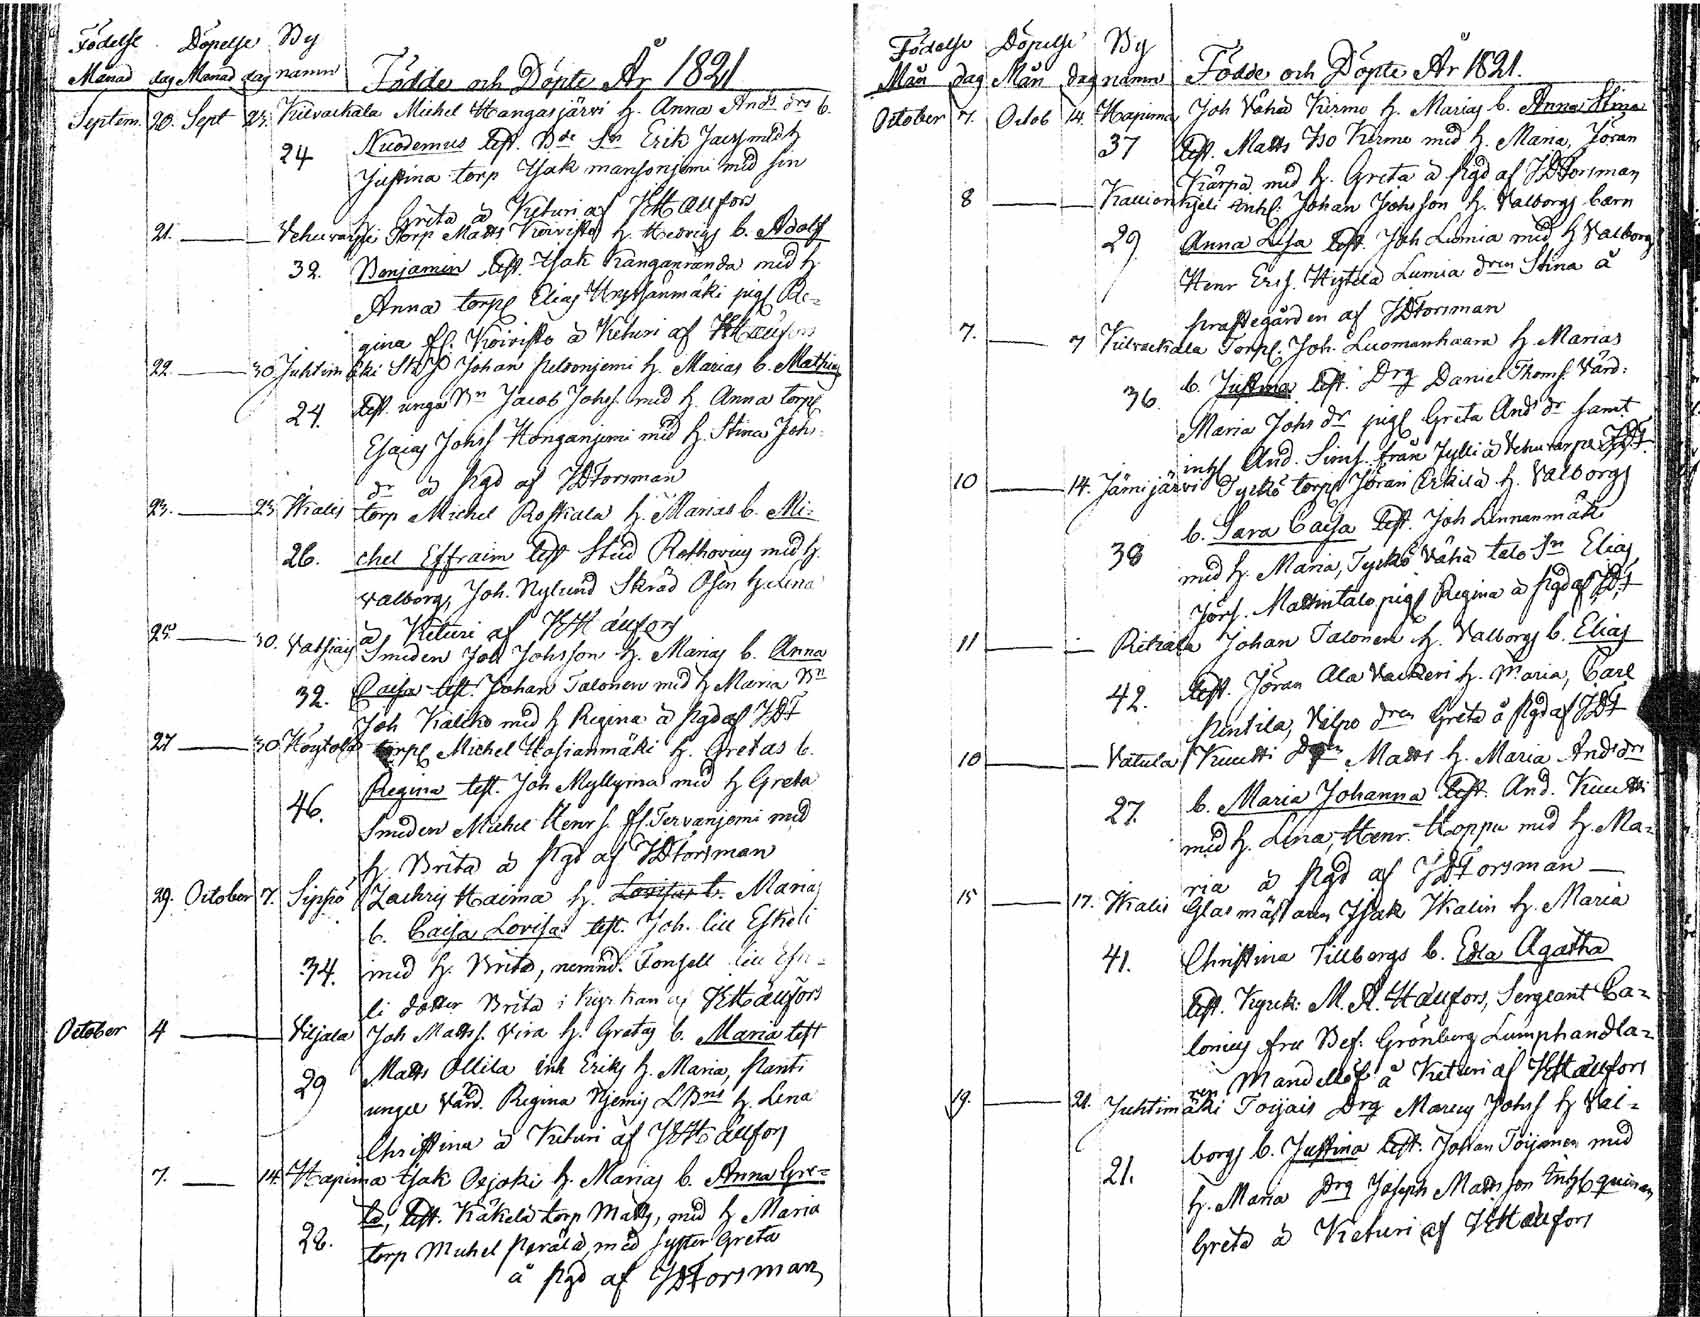 Födelse Döpelse By
Månad dag Månad dag namn Födde och Döpte År 1821
Septem. 20. Sept 23. Michel Hangasjärvi h. Anna Ands drs b.
24 Nicodemus test. Bde Sn Erik med h
Justina torp Isak med sin
h. Greta å Keturi af KHällfors
21. Vehuvarpe torp Matts Koivisto h. Hedvigs b. Adolf
32. Benjamin test. Isak Kanganranda med h.
Anna torp Elias pig Re=
gina Koivisto å Keturi af KHällfors
22. 30 Juhtimäki Johan h. Marias b. Mathias
24. test. unga Bn Jacob Johss. med h. Anna torp
Esaias Johss med h. Stina Johs
dr å Pgd af JDForsman
23. 23 Ikalis torp Michel Roskala h. Marias b. Mi=
26. chel Effraim test Stud Rothovius med h.
Valborg, Joh. Nylund h. Lena
å Keturi af KHällfors
25. 30. Vatsiais Smeden Joh Johsson h. Marias b. Anna
32. Caisa test. Johan Talonen med h Maria Bn
Joh Kallko med h Regina å Pgd af JDF
27 30 Höytölä torp Michel Hasianmäki h. Gretas b.
46. Regina test. Joh Myllymä med h Greta
Smeden Michel Henrs. med
h. Brita å Pgd af JDForsman
29. October 7. Sippo Zachris Haima h. Lovisas b. Marias
b. Caisa Lovisa test. Joh. lill Eskeli
34. med h. Brita, nemnd. Tonsell lill Eske=
li dotter Brita i Kyrkan af KHällfors
October 4 Viljala Joh Mattss. Vira h. Gretas b. Maria test
29 Matts Ollila Eriks h. Maria, Panti
unge Vård. Regina h. Lena
Christina å Keturi af KHällfors
7. 14. Hapima Isak Oejoki h. Marias b. Anna Gre=
28. ta, test. Käkelä torp Matts, med h Maria
torp Michel Perälä, med syster Greta
å Pgd af JDForsman
Födelse Döpelse By
Mån dag Mån dag namn Födde och Döpte År 1821.
October 7. Octob 14. Hapima Joh Vähä Kirmo h. Marias b. Anna Stina
37 test. Matts Iso Kirmo med h. Maria, Jöran
Kärpä med h. Greta å Pgd af JDForsman
8 Johan Johsson h. Valborgs barn
29. Anna Lisa test. Joh Lumia med h Valborg
Henr Erss. Hytilä Lumia dren Stina å
prästegården af JDForsman
7. 7 Torp. Joh. Luomanhaara h. Marias
36. b. Justina test. Drg Daniel Thoms. Vård:
Maria Johs dr pig Greta Ands dr samt
And. Sims. från Jylli å Vehuvarpe JDF.
10 14. Jämijärvi Tyrkö torp Jöran Erkilä h. Valborgs
b. Sara Caisa test. Joh Linnanmäki
38 med h. Maria, Tyrkö Vähä talo Sn Elias
Jörs. Mattintalo pig Regina å Pgd af JDF
11 Ritiala Johan Talonen h. Valborgs b. Elias
42. test. Jöran Ala Vackeri h. Maria, Carl
Pentila, Valpo dren Greta å Pgd af JDF
10 Vatula Kuutti Matts h. Maria Ands drs
27. b. Maria Johanna test. And. Kuutti
med h. Lena, Henr. Hoppu med h. Ma=
ria å Pgd af JDForsman
15 17. Ikalis Glasmästaren Isak Ikalin h. Maria
41. Christina Tillbergs b. Edla Agatha
test. Kyrk: M. A. Hällfors, Sergeant Ca=
lonius fru Bef: Grönberg Lumphandla=
ren Mandellöf å Keturi af KHällfors
19. 21. Juhtimäki Toijais Drg Marcus Johss h Val=
21. borgs b. Justina test. Johan Toijanen med
h. Maria Drg Joseph Mattsson Inh. quinan
Greta å Keturi af KHällfors